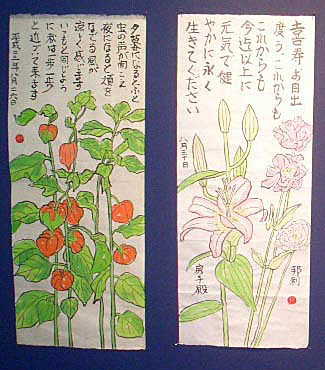 喜寿 お目出
度う。これからも
これからも
今迄以上に
元気で健
やかに永く
生きてください
八月三十日
邦利
房子殿
夕暮になるとふと
虫の声が聞こえ
夜になると頬を
なでる風が
涼しく感じます
いつもと同じよう
に秋は一歩一歩
と近づいて来ます
平成 年八月二六日